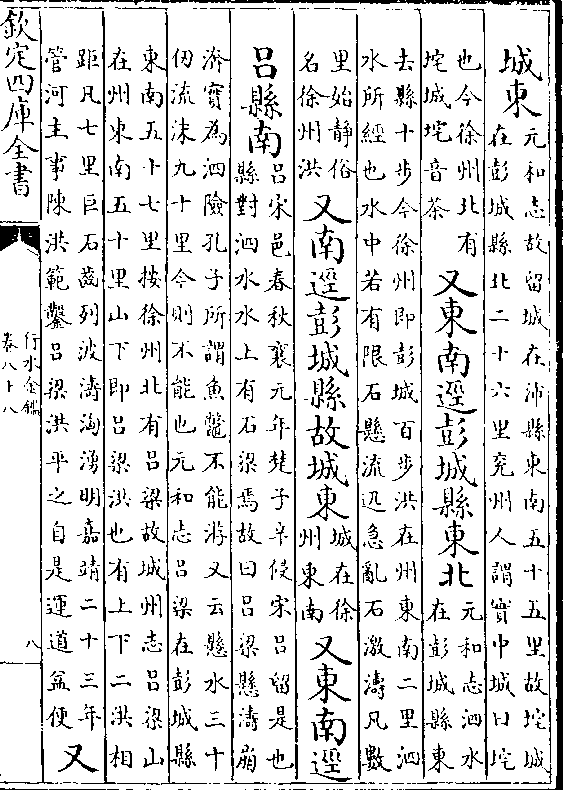 城東
元和志故留城在沛縣東南五十五里故垞城
在彭城縣北二十六里兖州人謂實中城曰垞
也今徐州北有
垞城垞音茶
又東南逕彭城縣東北
元和志泗水
在彭城縣東
去縣十步今徐州即彭城百步洪在州東南二里泗
水所經也水中若有限石懸流迅急亂石激濤凡數
里始静俗
名徐州洪
又南逕彭城縣故城東
城在徐
州東南
又東南逕
呂縣南
呂宋邑春秋襄元年楚子辛侵宋呂留是也
縣對泗水水上有石梁焉故曰呂梁懸濤崩
濟實為泗險孔子所謂魚鼈不能游又云懸水三十
仞流沫九十里今則不能也元和志呂梁在彭城縣
東南五十七里按徐州北有呂梁故城州志呂梁山
在州東南五十里山下即呂梁洪也有上下二洪相
距凡七里巨石齒列波濤洶湧明嘉靖二十三年
管河主事陳洪範鑿呂梁洪平之自是運道益便
又
欽定四庫全書
行水金鑑
卷八十八
八